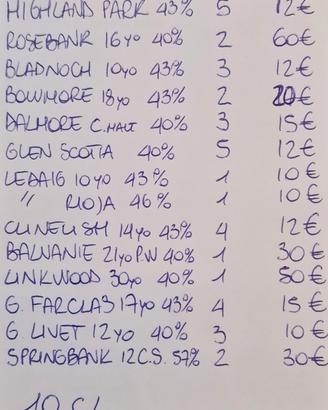 HIGHLAND PARK 43% 5 12€
ROSEBANK 16yo 40% 2 60€
BLADNOCH 10yo 43% 3 12€
BOWMORE 18yo 43% 2 20€
DALMORE C.MALT 40% 3 15€
GLEN SCOTIA 40% 5 12€
LEDAIG 10yo 43% 1 10€
" RIOJA 46% 1 10€
CLINELISH 14yo 43% 4 12€
BALVANIE 21yo P.W 40% 1 30€
LINKWOOD 30yo 40% 1 50€
G. FARCLAS 17yo 43% 4 15€
G. LIVET 12yo 40% 3 10€
SPRINGBANK 12 C.S. 57% 2 30€
10 CL